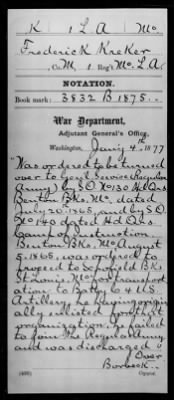 K | 1 L A | Mo.
Frederick Kreker
Co. M, 1 Reg't Mo. L.A.
NOTATION.
Book mark: 3832 B 1875
War Department,
Adjutant General's Office,
Washington, Jan'y 4th, 1877
"Was ordered to be turned
over to Gen'l Service (Regular
Army) by S.O. No 130 Hd. Qrs
Benton Bks. Mo. dated
July 20. 1865, and by S.O.
No 140 Hd. Qrs.
Camp of instruction
Benton Bks, Mo August
5. 1865, was ordered to
proceed to Schofield Bks
St Louis Mo for transportation
to Batty G 4 U.S.
Artillery, he having originally
enlisted for that
organization, he failed
to join the Regular Army
and was discharged."
Over
Borbeck